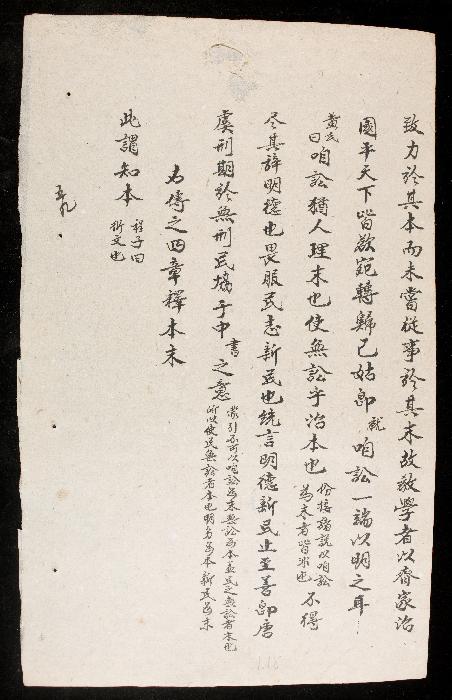 致力於其本而未嘗從事於其末故教學者以齊家治
國平天下皆欲宛轉歸己姑即就咱訟一端以明之耳
黃氏曰咱訟猶人理末也使無訟乎治本也份按諸說以咱訟為末者皆非也不得
尽其辞明德也畏服民志新民也統言明德新民止至善即唐
虞刑期於無刑民協于中書之意
右傳之四章釋本末
此謂知本程子曰衍文也